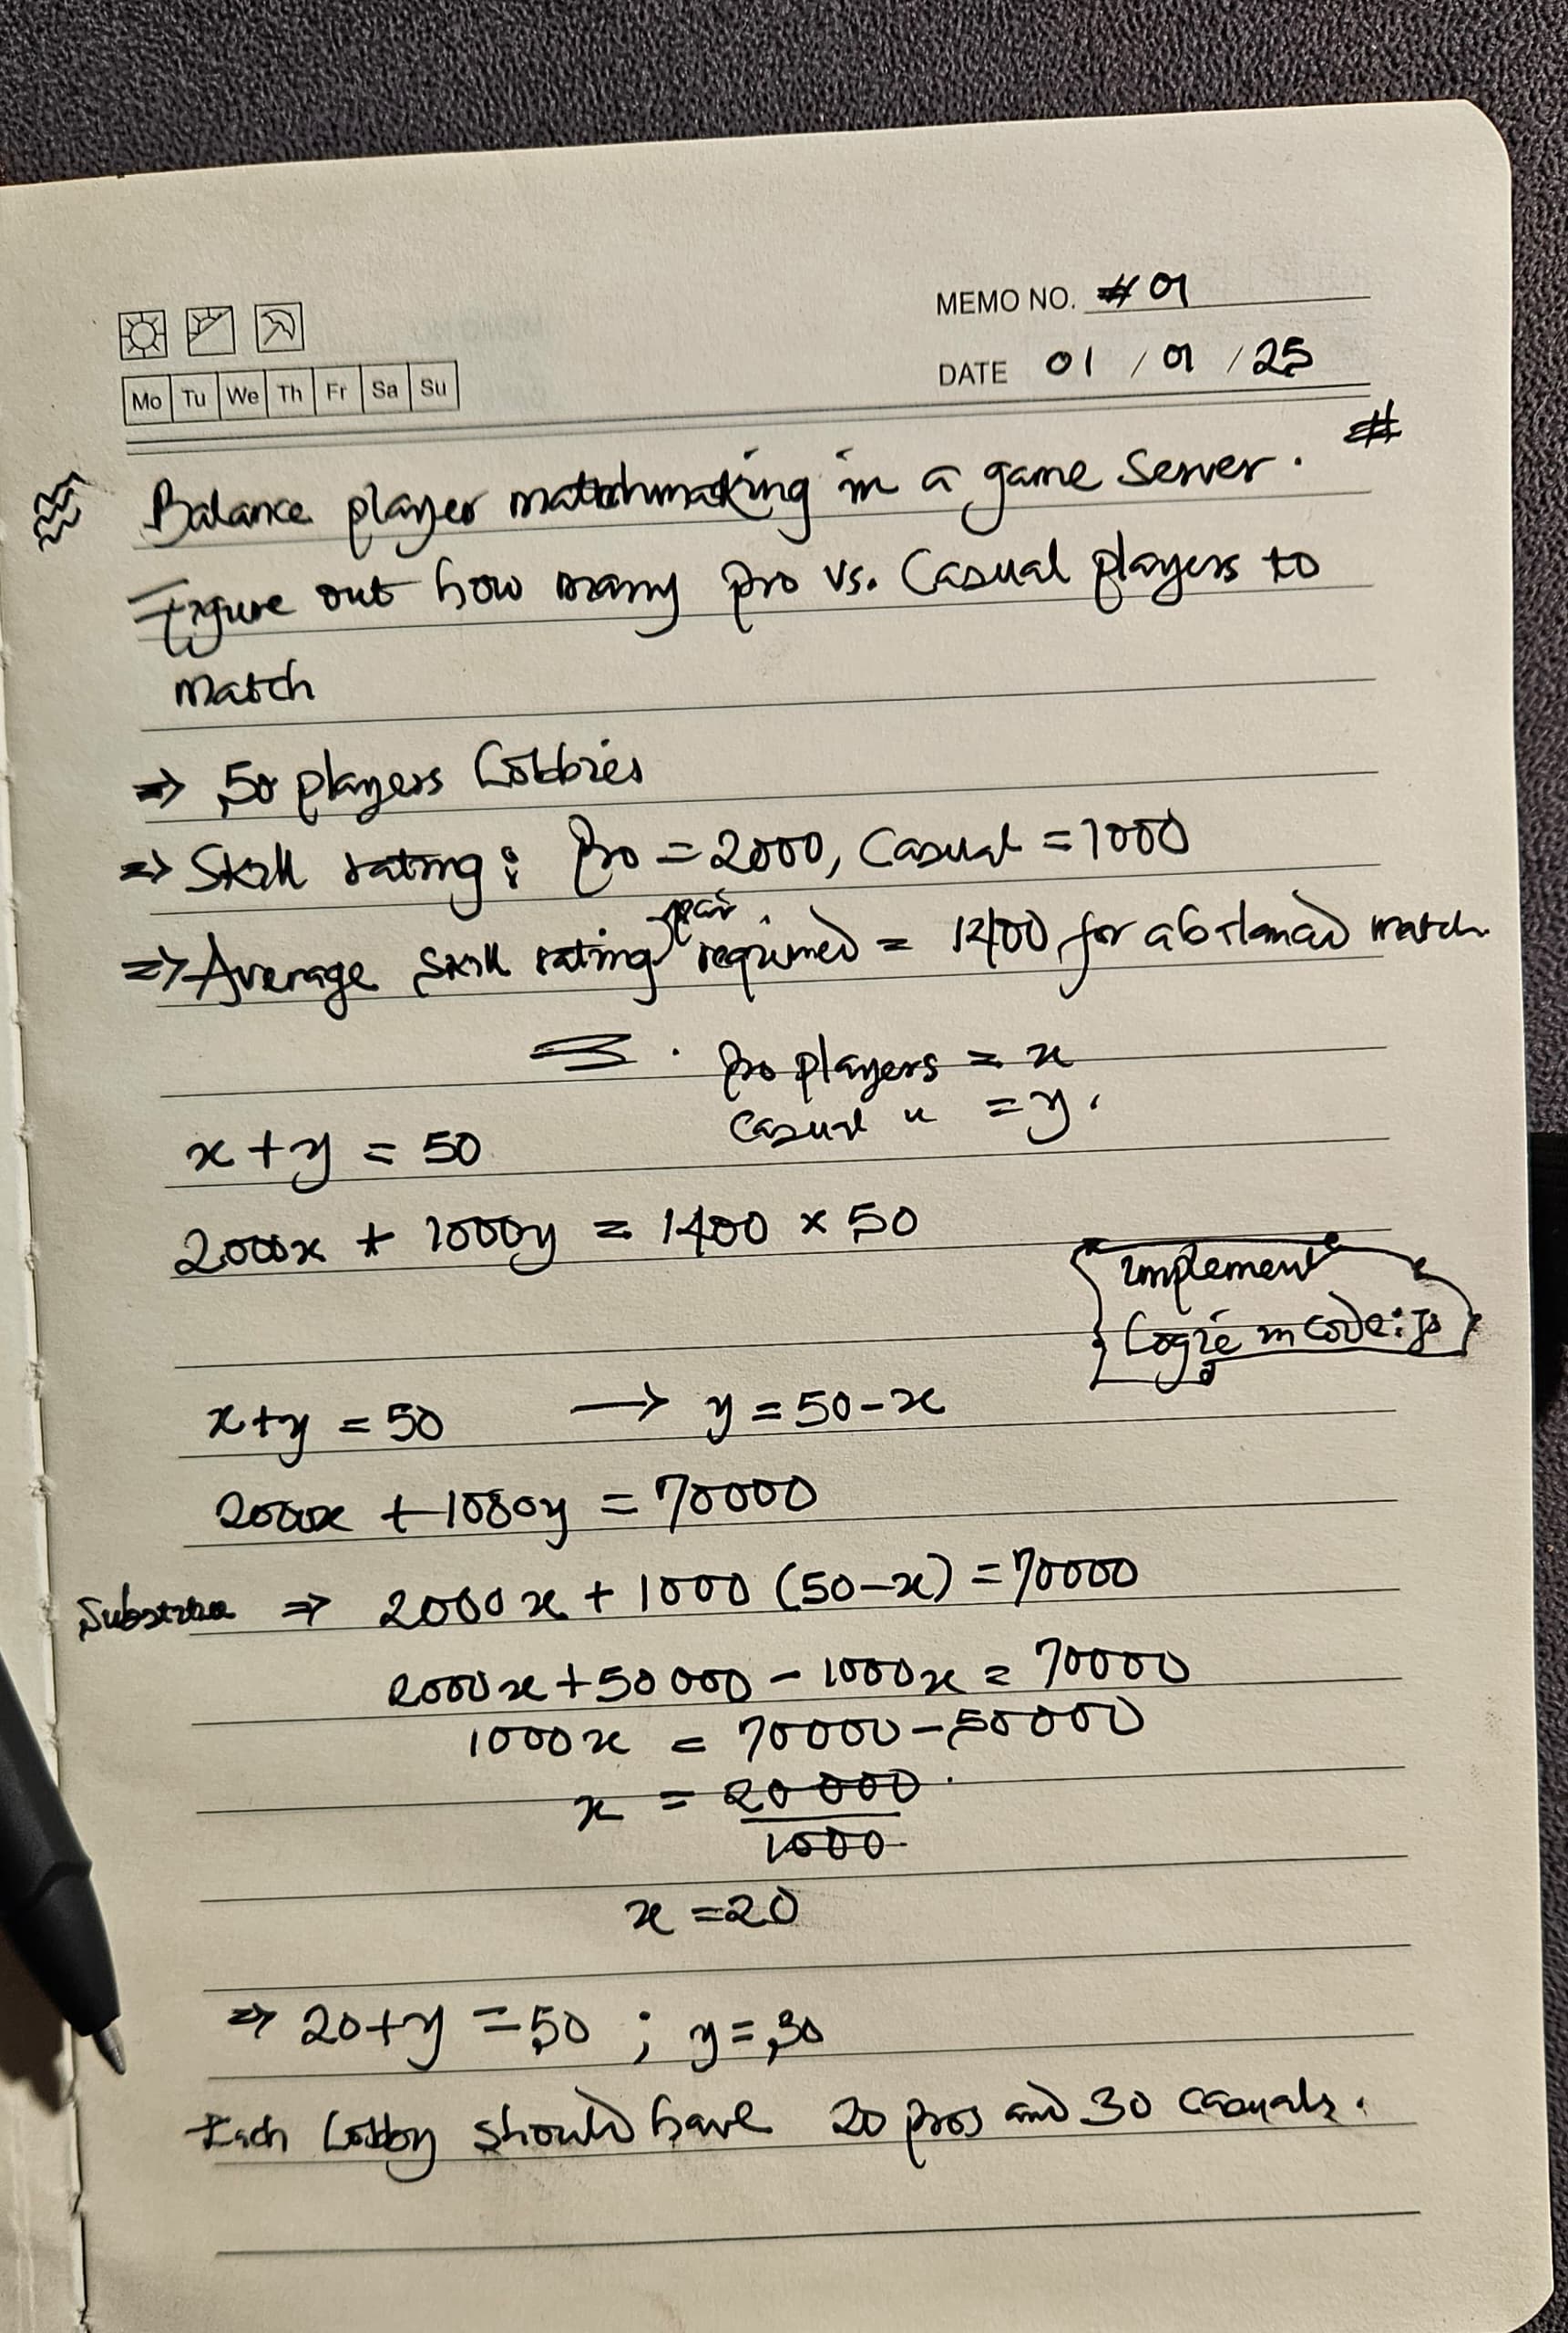 MEMO NO. #01
DATE 01 / 01 / 25
Mo Tu We Th Fr Sa Su
Balance player matchmaking in a game server. #
Figure out how many pro vs. Casual players to
match
⇒ 50 players Lobbies
⇒ Skill rating: Pro = 2000, Casual = 1000
⇒ Average skill rating required = 1400 for a balanced match
Pro players = x
Casual " = y.
x + y = 50
2000x + 1000y = 1400 × 50
implement
Logic in code: js
x + y = 50 → y = 50 - x
2000x + 1000y = 70000
⇒ 2000x + 1000 (50 - x) = 70000
2000x + 50000 - 1000x = 70000
1000x = 70000 - 50000
x = 20000
1000
x = 20
⇒ 20 + y = 50 ; y = 30
Each Lobby should have 20 pros and 30 casuals.